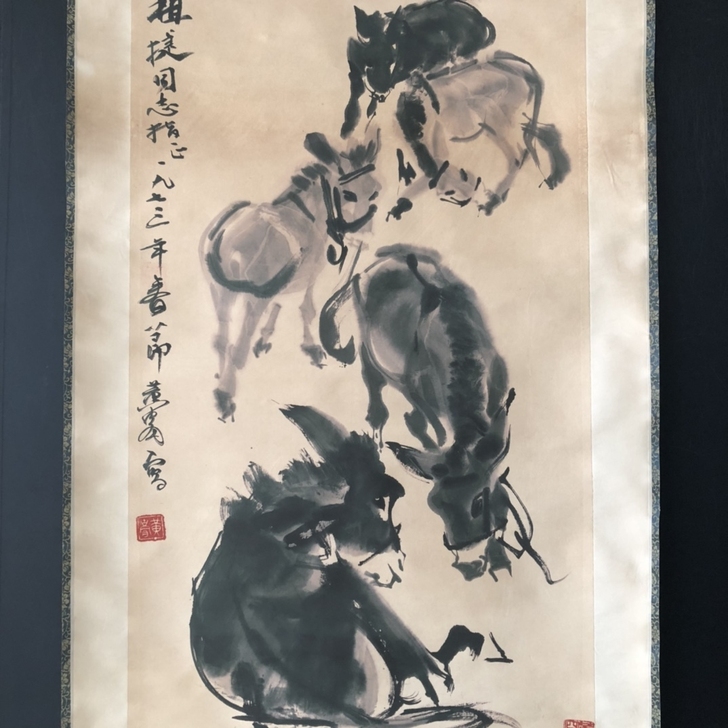 捷同志指正一九七三年春節黄胄寫
黄胄